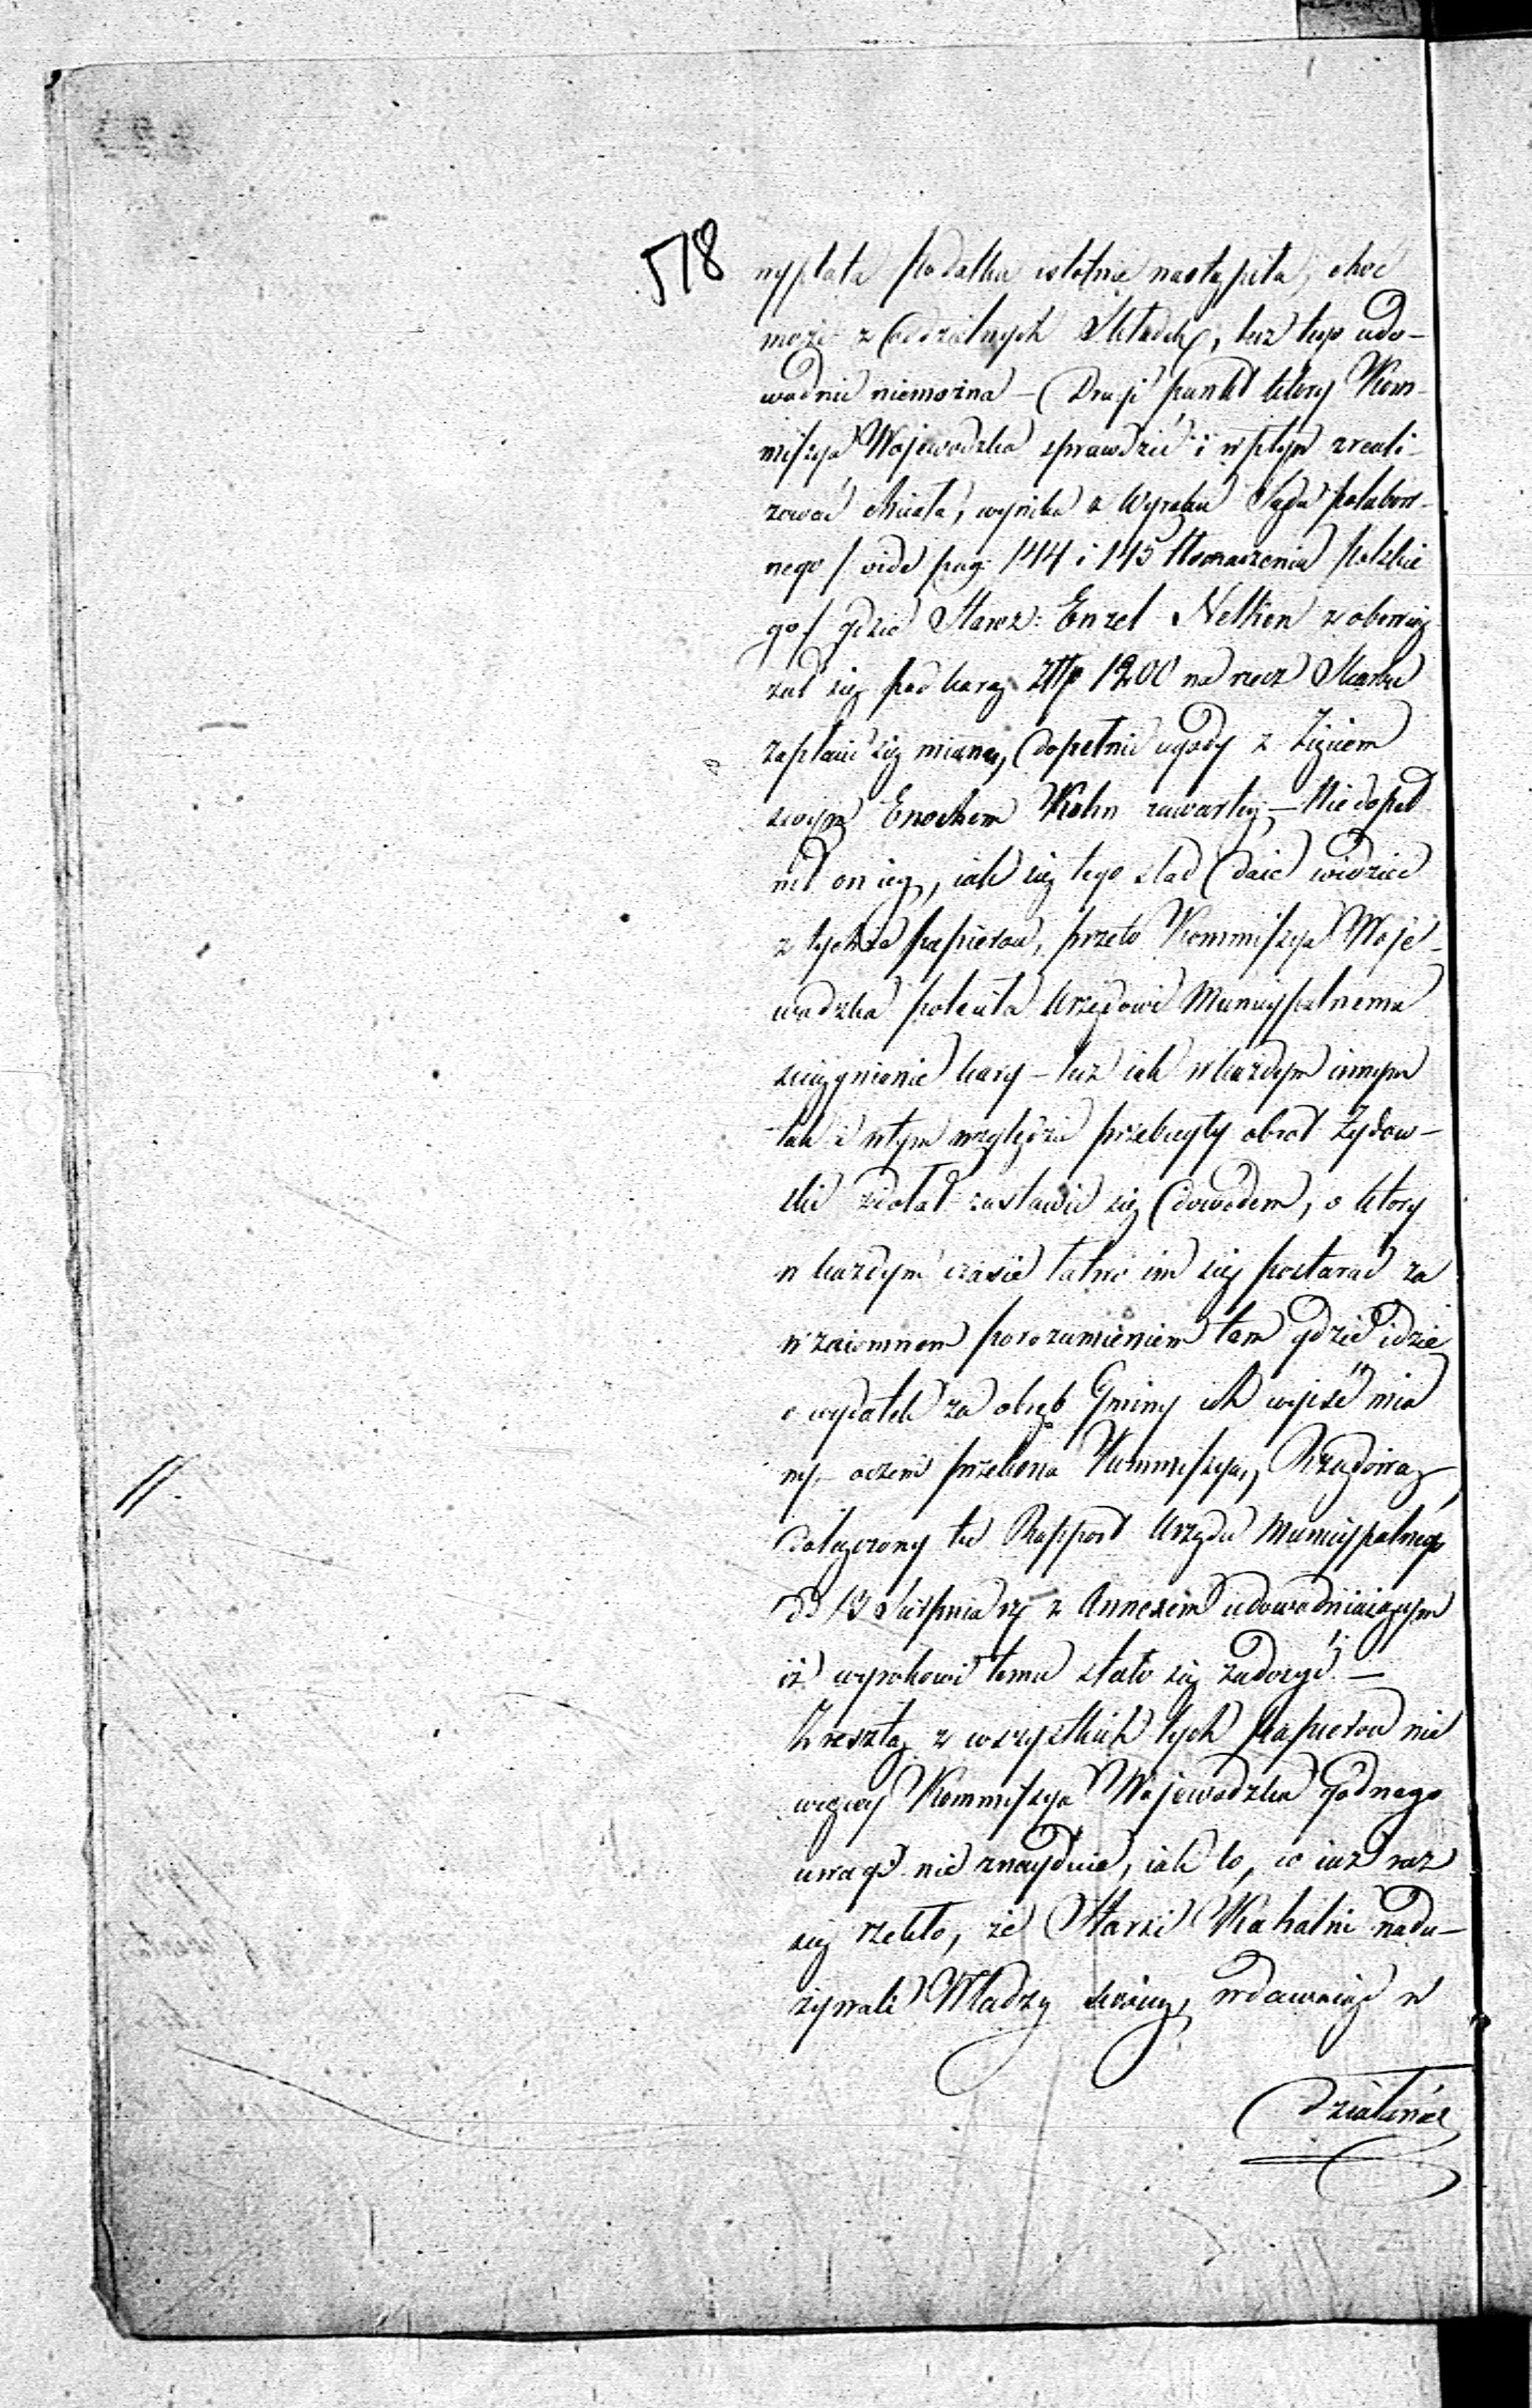 578
wypłata podatku istotnie nastąpiła, choć
może z oddzielnych Składek, lecz tego udo-
wodnić niemożna – Drugi punkt który Kom-
missya Wojewodzka sprawdzić i w płyn zreali-
zować chciała, wynika z Wyroku Sądu polubow-
nego / vide pag: 144 i 145 tłomaczenia polskie
go / gdzie Staroz: Enzel Nelken zobowią
zał się pod karą Złłp 1200 na rzecz Skarbu
zapłacić się mianą, dopełnić ugody z Zięciem
swoym Enochem Kohn zawartey, – Nie dopeł
nił on iey, iak się tego ślad daie widzieć
z tychże papierow, przeto Kommissya Woje-
wodzka poleciła Urzędowi Municypalnemu
sciągnienie kary – lecz iak w każdym innym
tak i w tym względzie przebiegły obrot Żydow-
ski zdołał zastawić się dowodem, o ktory
w każdym czasie łatwo im się postarać za
wzaiemnem porozumieniem tam gdzie idzie
o wydatek za obręb Gminy ich wyiść mia
ny – oczem przekona Kommissyą Rządową
dołączony tu Rapport Urzędu Municypalnego
dd 13 Sierpnia rb z Annexem udowadniaiącym
iż wyrokowi temu stało się zadosyć. –
Zresztą z wszystkich tych papierow nic
więcey Kommissya Wojewodzka godnego
uwagi nie znayduie, iak to, co iuż raz
się rzekło, że Starsi Kahalni nadu-
żywali Władzy swoiey, wdawaiąc w
działania